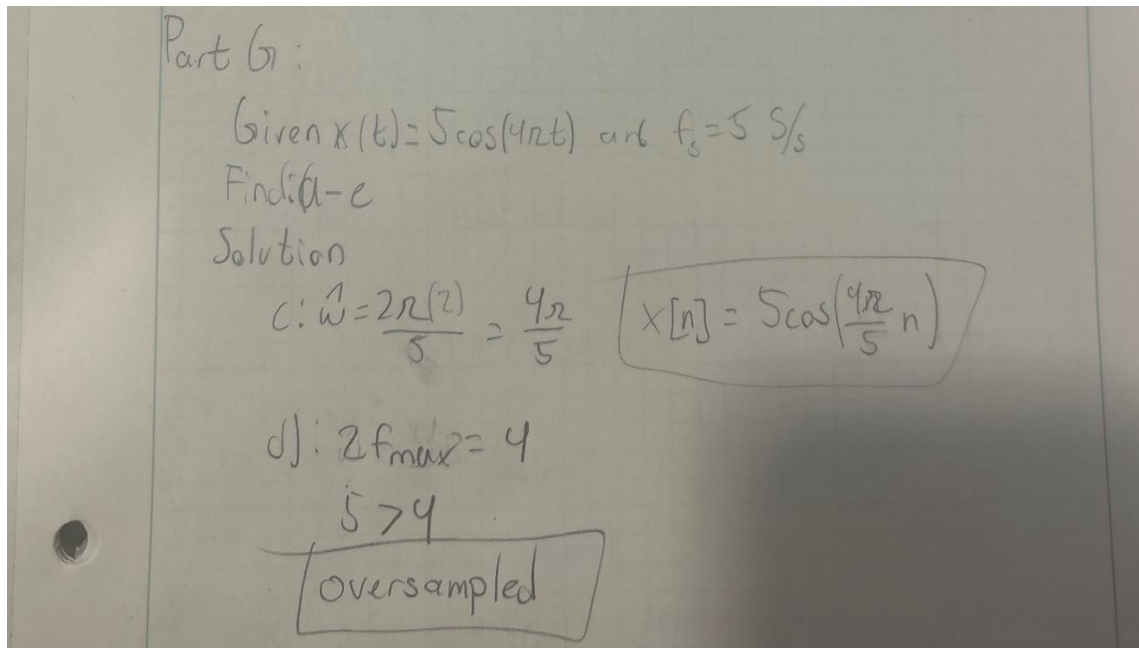 Part G:
Given x(t)=5cos(4πt) and f_s=5 S/s
Find: a-e
Solution
c: ω̂ = 2π(2)/5 = 4π/5   x[n] = 5cos(4π/5 n)
d): 2f_max = 4
5>4
oversampled